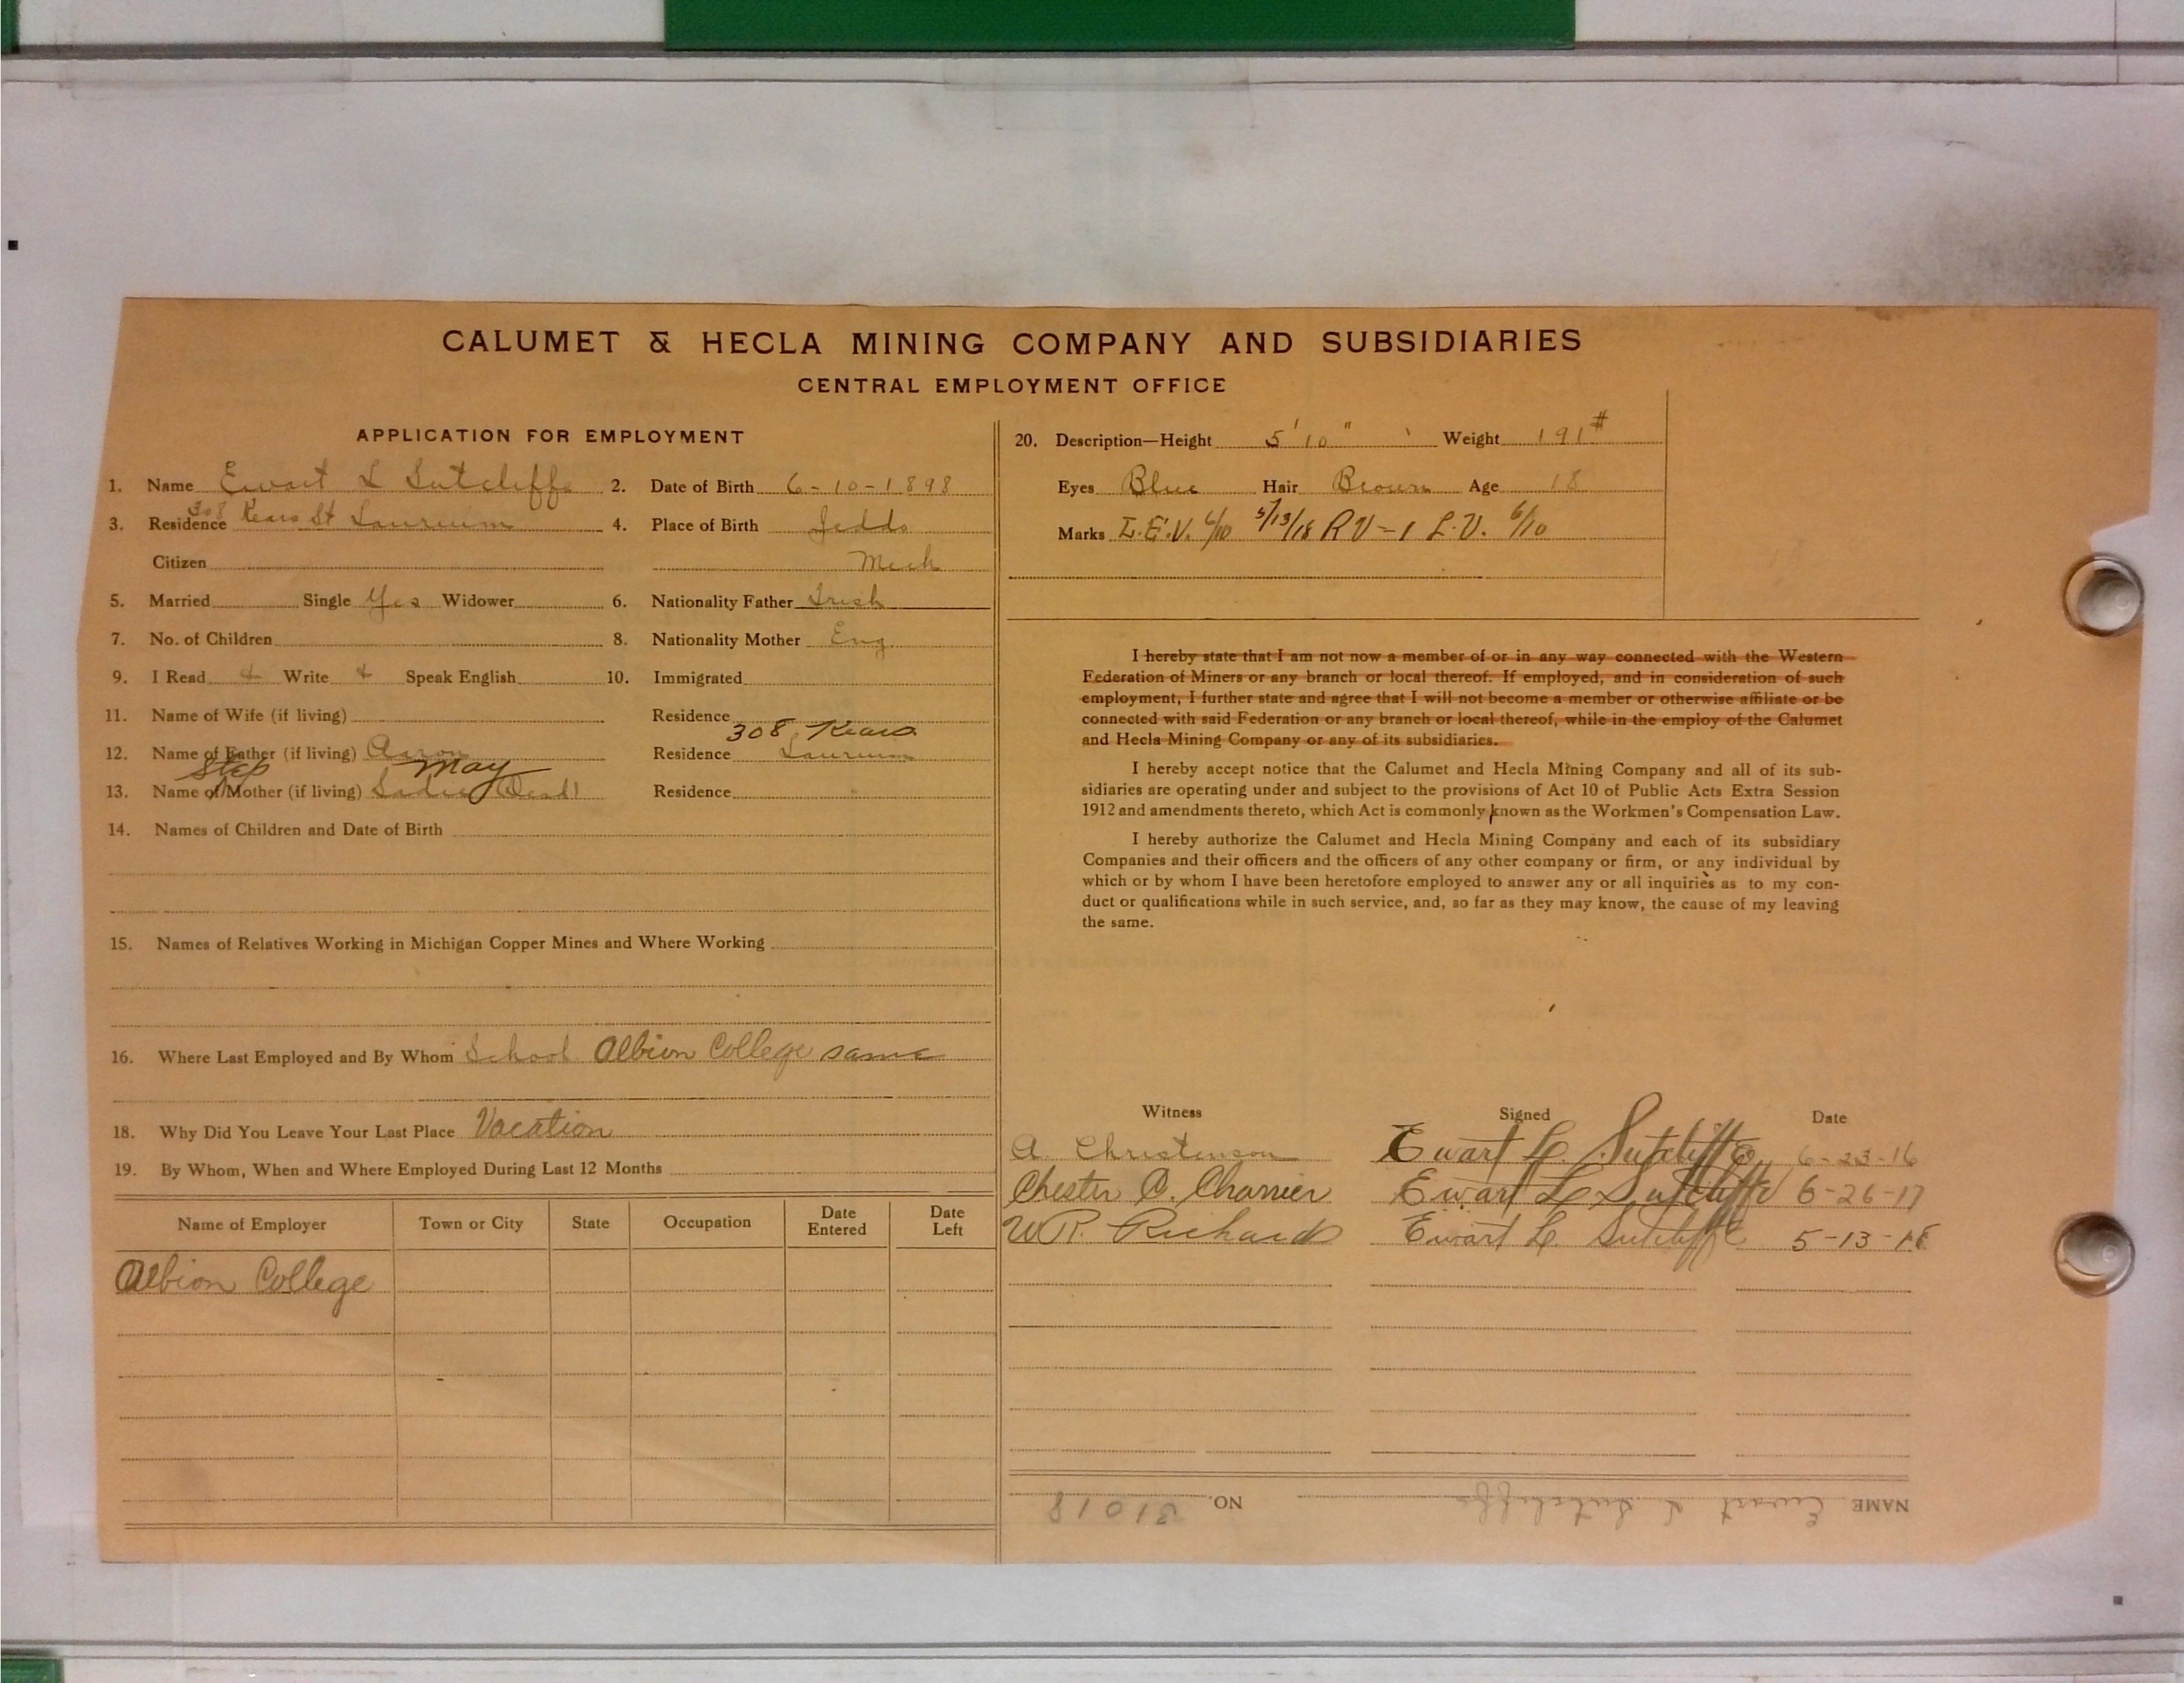 CALUMET & HECLA MINING COMPANY AND SUBSIDIARIES
CENTRAL EMPLOYMENT OFFICE
APPLICATION FOR EMPLOYMENT
1. Name Ewart L Sutcliffe 2. Date of Birth 6-10-1898
3. Residence 308 Kears St Laurium 4. Place of Birth Jeddo
Citizen Mich
5. Married Single Yes Widower 6. Nationality Father Irish
7. No. of Children 8. Nationality Mother Eng
9. I Read & Write & Speak English 10. Immigrated
11. Name of Wife (if living) Residence
308 Kears
12. Name of Father (if living) Aaron Residence Laurium
Step May
13. Name of Mother (if living) Sadie (Dead) Residence
14. Names of Children and Date of Birth
15. Names of Relatives Working in Michigan Copper Mines and Where Working
16. Where Last Employed and By Whom School Albion College same
18. Why Did You Leave Your Last Place Vacation
19. By Whom, When and Where Employed During Last 12 Months
Name of Employer Town or City State Occupation Date Entered Date Left
Albion College
20. Description—Height 5' 10" Weight 191#
Eyes Blue Hair Brown Age 18
Marks L.E.V. 6/10 5/13/18 R V - 1 L.V. 6/10
I hereby state that I am not now a member of or in any way connected with the Western
Federation of Miners or any branch or local thereof. If employed, and in consideration of such
employment, I further state and agree that I will not become a member or otherwise affiliate or be
connected with said Federation or any branch or local thereof, while in the employ of the Calumet
and Hecla Mining Company or any of its subsidiaries.
I hereby accept notice that the Calumet and Hecla Mining Company and all of its sub-
sidiaries are operating under and subject to the provisions of Act 10 of Public Acts Extra Session
1912 and amendments thereto, which Act is commonly known as the Workmen's Compensation Law.
I hereby authorize the Calumet and Hecla Mining Company and each of its subsidiary
Companies and their officers and the officers of any other company or firm, or any individual by
which or by whom I have been heretofore employed to answer any or all inquiries as to my con-
duct or qualifications while in such service, and, so far as they may know, the cause of my leaving
the same.
Witness Signed Date
A. Christenson Ewart L. Sutcliffe 6-23-16
Chester C. Charrier Ewart L Sutcliffe 6-26-17
W R. Richard Ewart L. Sutcliffe 5-13-18
NAME Ewart L Sutcliffe NO. 31018